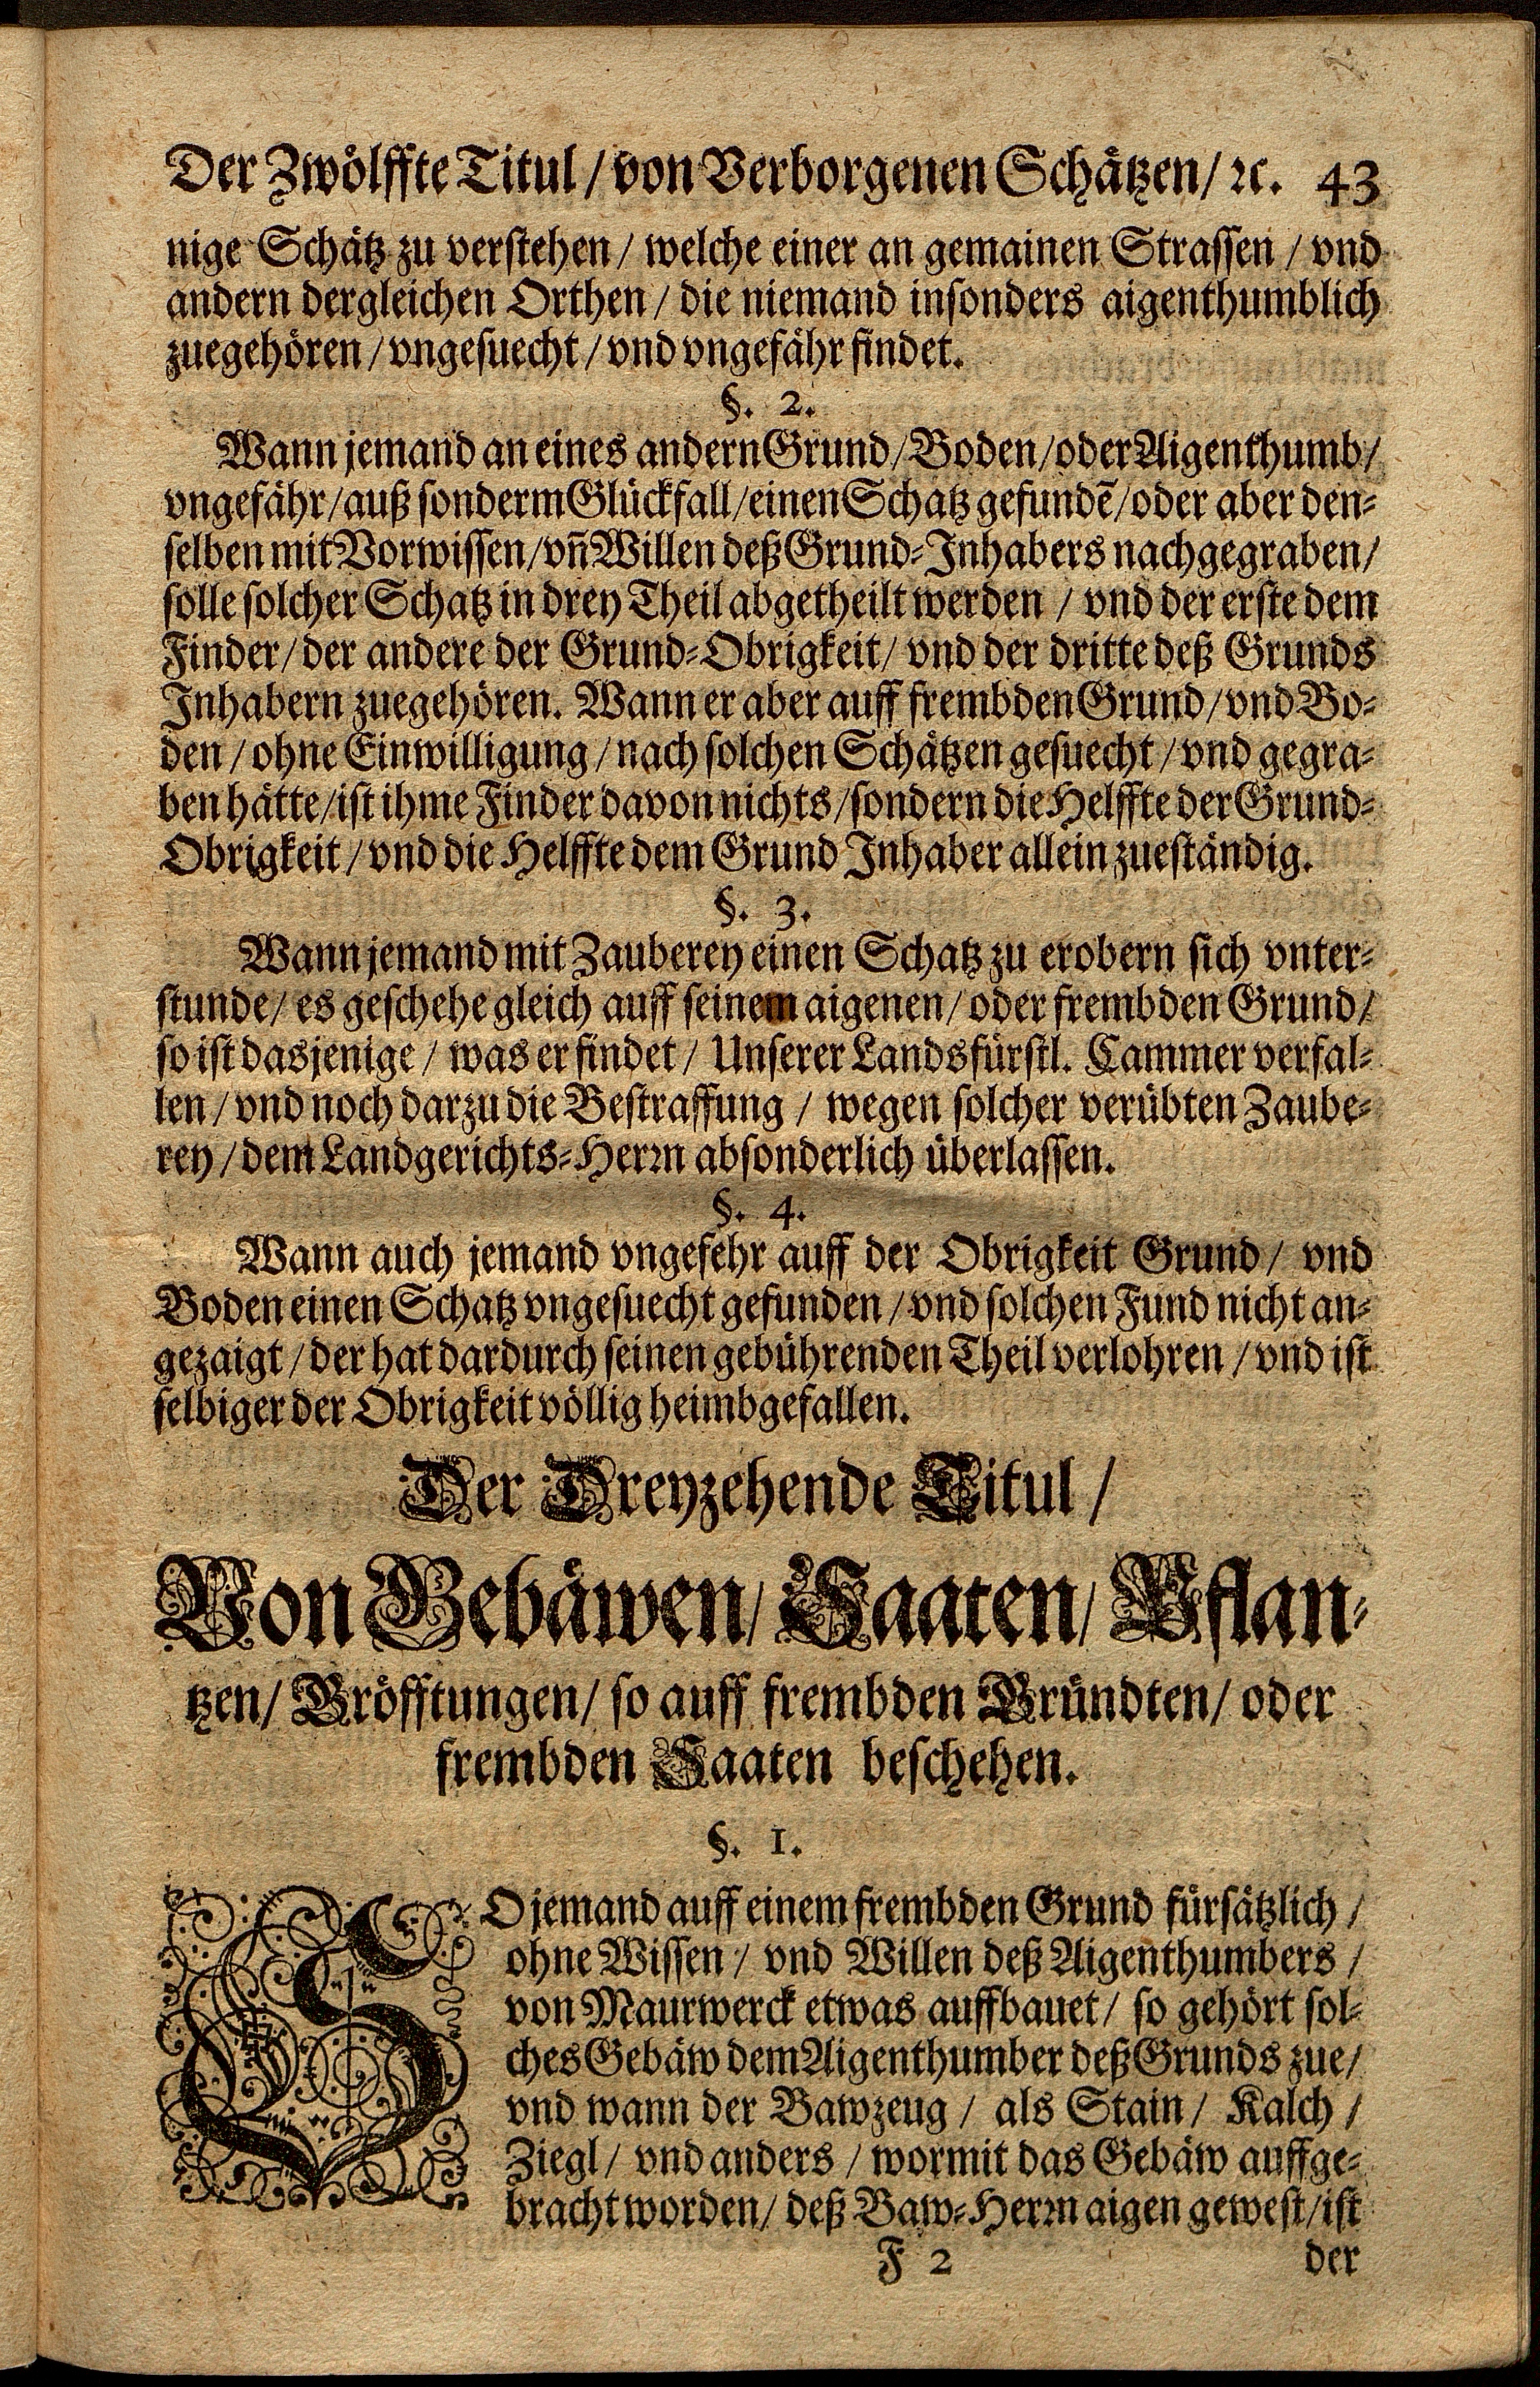 Der Zwölffte Titul / von Verborgenen Schätzen / ꝛc. 43
nige Schätz zu verstehen / welche einer an gemainen Strassen / vnd
andern dergleichen Orthen / die niemand insonders aigenthumblich
zuegehören / vngesuecht / vnd vngefähr findet.
§. 2.
Wann jemand an eines andern Grund / Boden / oder Aigenthumb /
vngefähr / auß sonderm Glückfall / einen Schatz gefundẽ / oder aber den-
selben mit Vorwissen / vñ Willen deß Grund-Inhabers nachgegraben /
solle solcher Schatz in drey Theil abgetheilt werden / vnd der erste dem
Finder / der andere der Grund-Obrigkeit / vnd der dritte deß Grunds
Inhabern zuegehören. Wann er aber auff frembden Grund / vnd Bo-
den / ohne Einwilligung / nach solchen Schätzen gesuecht / vnd gegra-
ben hätte / ist ihme Finder davon nichts / sondern die Helffte der Grund-
Obrigkeit / vnd die Helffte dem Grund Inhaber allein zueständig.
§. 3.
Wann jemand mit Zauberey einen Schatz zu erobern sich vnter-
stunde / es geschehe gleich auff seinem aigenen / oder frembden Grund /
so ist dasjenige / was er findet / Unserer Landsfürstl. Cammer verfal-
len / vnd noch darzu die Bestraffung / wegen solcher verübten Zaube-
rey / dem Landgerichts-Herꝛn absonderlich überlassen.
§. 4.
Wann auch jemand vngefehr auff der Obrigkeit Grund / vnd
Boden einen Schatz vngesuecht gefunden / vnd solchen Fund nicht an-
gezaigt / der hat dardurch seinen gebührenden Theil verlohren / vnd ist
selbiger der Obrigkeit völlig heimbgefallen.
Der Dreyzehende Titul /
Von Gebäwen / Saaten / Pflan-
tzen / Gröfftungen / so auff frembden Gründten / oder
frembden Saaten beschehen.
§. 1.
SO jemand auff einem frembden Grund fürsätzlich /
ohne Wissen / vnd Willen deß Aigenthumbers /
von Maurwerck etwas auffbauet / so gehört sol-
ches Gebäw dem Aigenthumber deß Grunds zue /
vnd wann der Bawzeug / als Stain / Kalch /
Ziegl / vnd anders / wormit das Gebäw auffge-
bracht worden / deß Baw-Herꝛn aigen gewest / ist
F 2 der